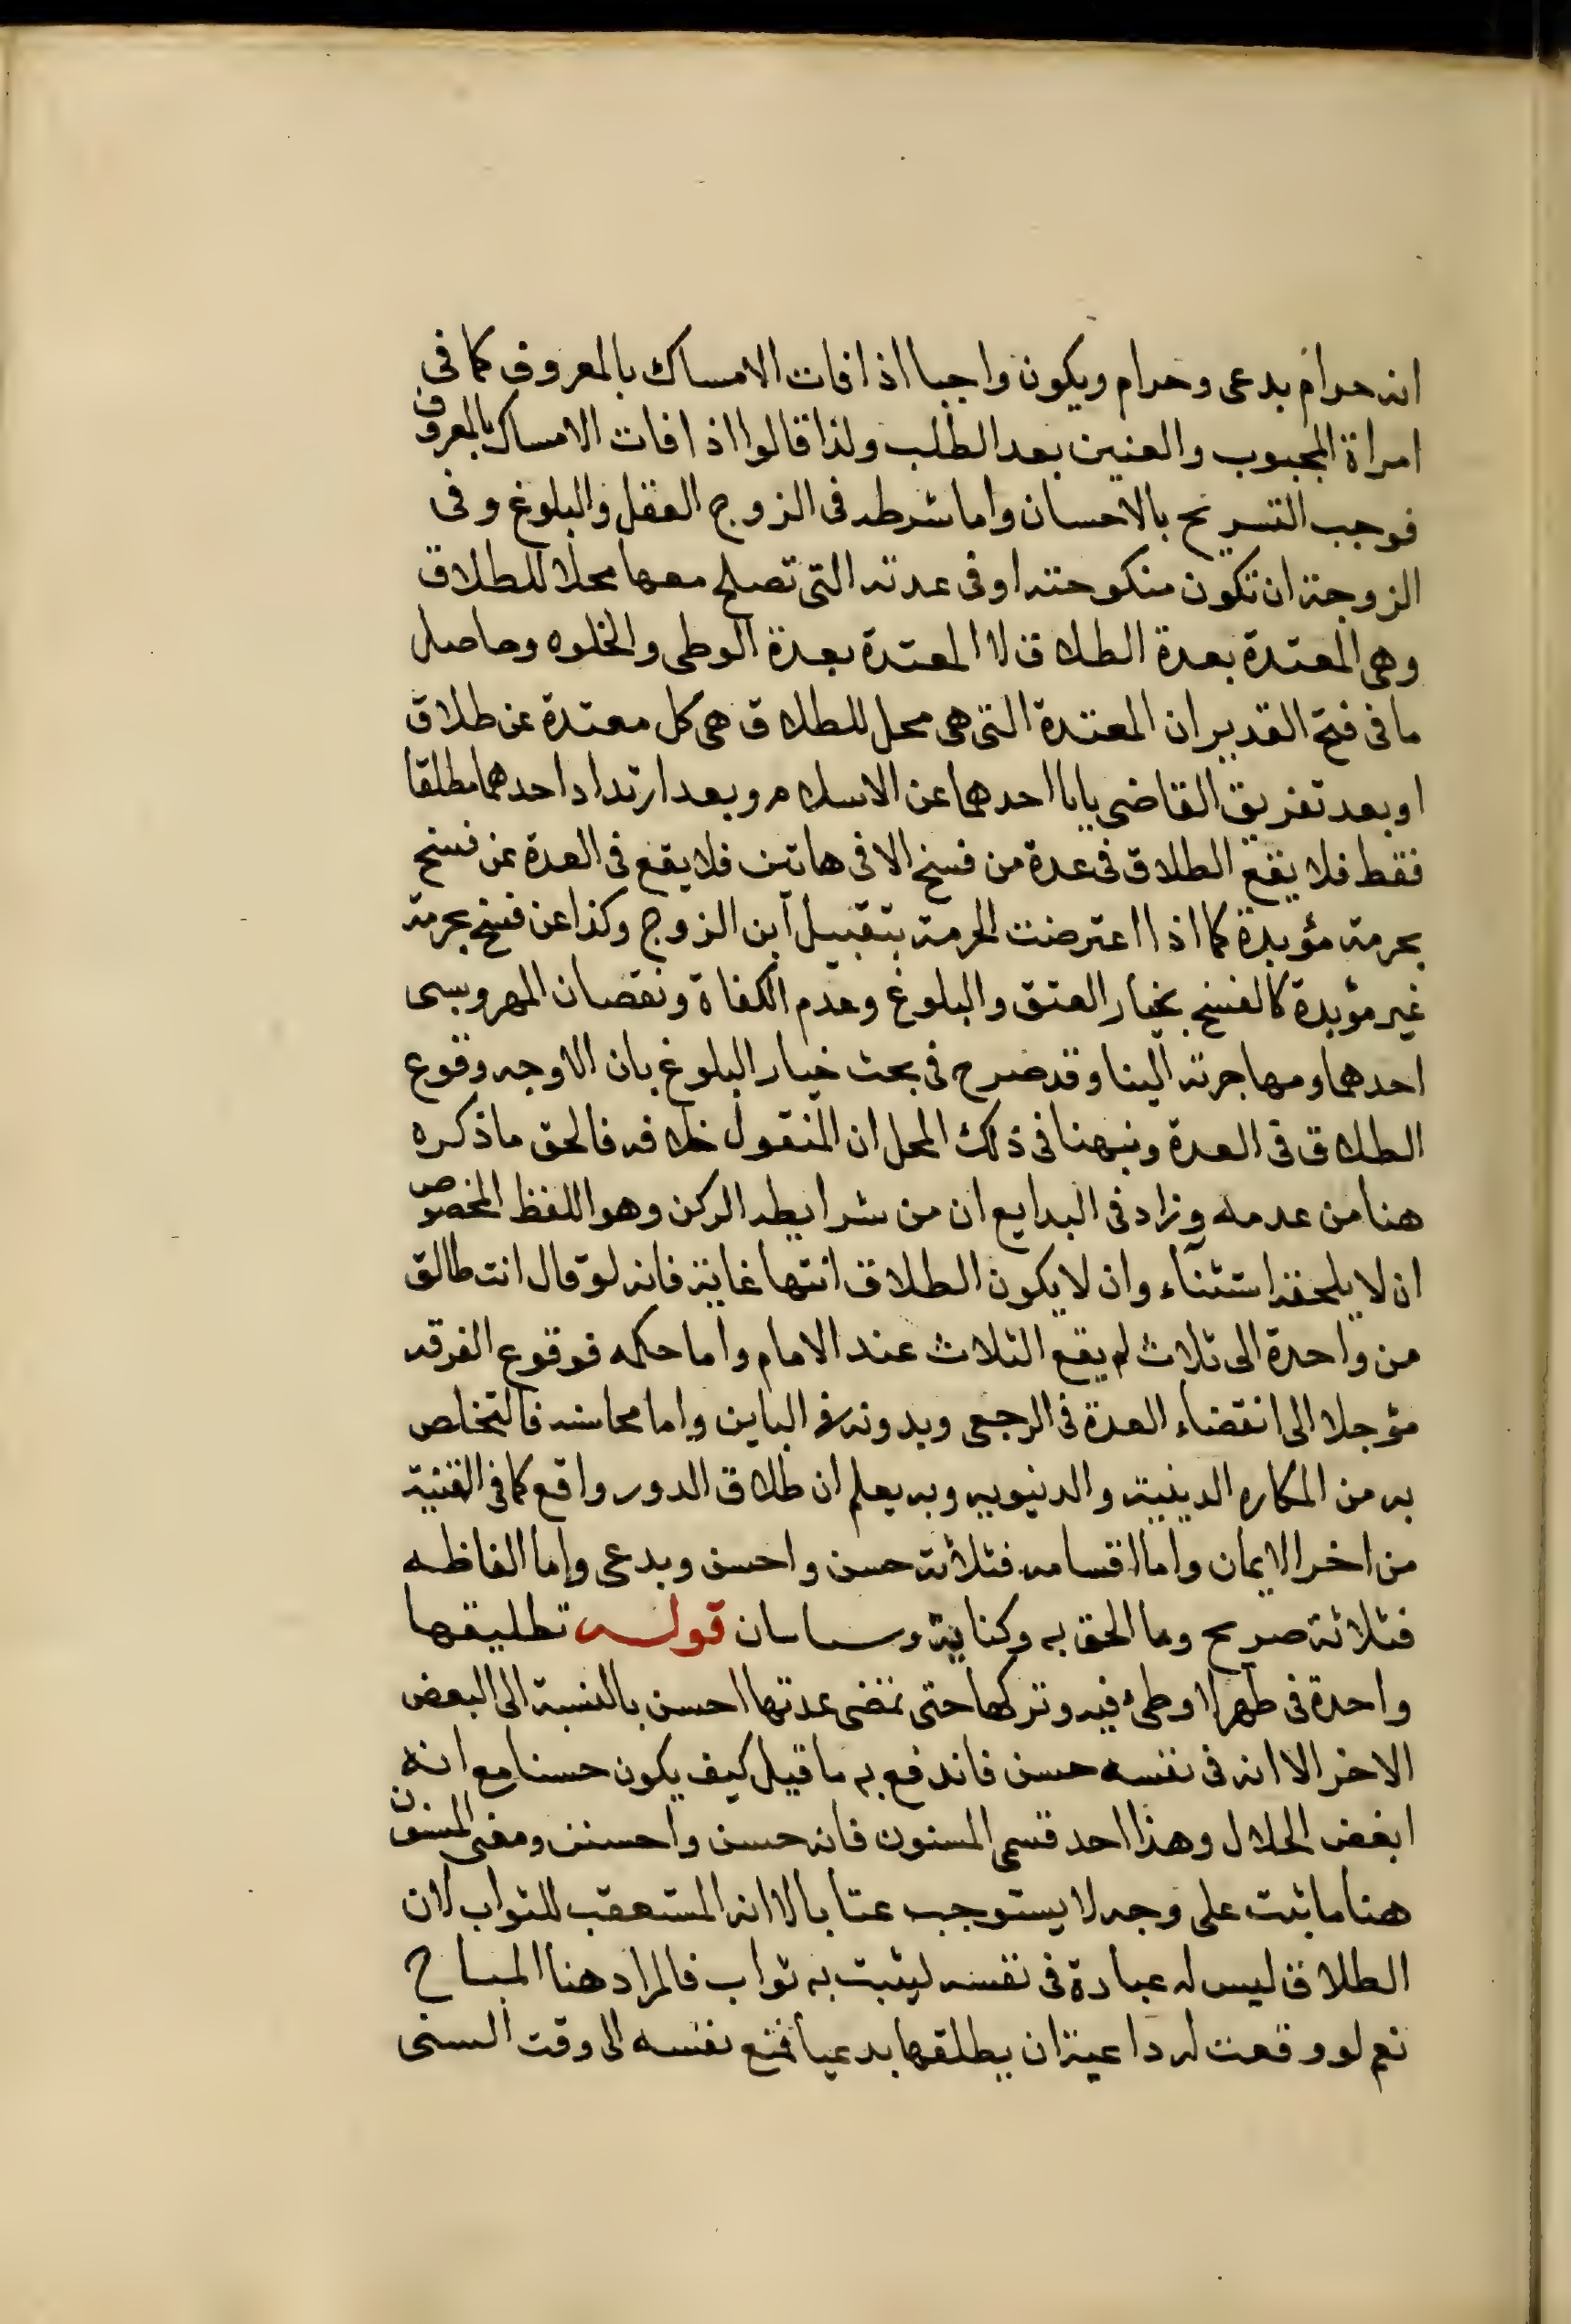 انه حرام بدعى وحرام ويكون واجبا اذا فات الامساك بالمعروف كما فى
امراة المجبوب والعنين بعد الطلب ولذا قالوا اذا فات الامساك بالمعروف
فوجب التسريح بالاحسان واما شرطه فى الزوج العقل والبلوغ وفى
الزوجة ان تكون منكوحته او فى عدته التى تصلح معها محلا للطلاق
وهى المعتدة بعدة الطلاق لا المعتدة بعدة الوطى والخلوه وحاصل
ما فى فتح القدير ان المعتدة التى هى محل للطلاق هى كل معتدة عن طلاق
او بعد تفريق القاضى بابا احدهما عن الاسلام وبعد ارتداد احدهما مطلقا
فقط فلا يقع الطلاق فى عدة من فسخ الا فى هاتين فلا يقع فى العدة عن فسخ
بحرمة مؤبدة كما اذا اعترضت الحرمة بتقبيل ابن الزوج وكذا عن فسخ بحرمة
غير مؤبدة كالفسخ بخيار العتق والبلوغ وعدم الكفاة ونقصان المهر وسبى
احدهما ومهاجرته الينا وقد صرح فى بحث خيار البلوغ بان الاوجه وقوع
الطلاق فى العدة ونبهنا فى ذلك المحل ان المنقول خلافه فالحق ما ذكره
هنا من عدمه وزاد فى البدايع ان من شرايطه الركن وهو اللفظ المخصوص
ان لا يلحقه استثناء وان لا يكون الطلاق انتها غاية فانه لو قال انت طالق
من واحدة الى ثلاث لم يقع الثلاث عند الامام واما حكمه فوقوع الفرقه
مؤجلا الى انقضاء العدة فى الرجعى وبدونه فى الباين واما محاسنه فالتخلص
به من المكاره الدينية والدنيويه وبه يعلم ان طلاق الدور واقع كما فى القنية
من اخر الايمان واما اقسامه فثلاثة حسن واحسن وبدعى واما الفاظه
فثلاثة صريح وما الحق به وكناية قوله تطليقها
واحدة فى طهر لا وطئ فيه وتركها حتى تمضى عدتها احسن بالنسبة الى البعض
الاخر الا انه فى نفسه حسن فاندفع به ما قيل كيف يكون حسنا مع انه
ابغض الحلال وهذا احد قسمى المسنون فانه حسن واحسن ومعنى المسنون
هنا ما ثبت على وجه لا يستوجب عتابا لا انه المستعقب للثواب لان
الطلاق ليس له عبادة فى نفسه ليثبت به ثواب فالمراد هنا المباح
نعم لو وقعت له داعية ان يطلقها بدعيا فمنع نفسه الى وقت السنى